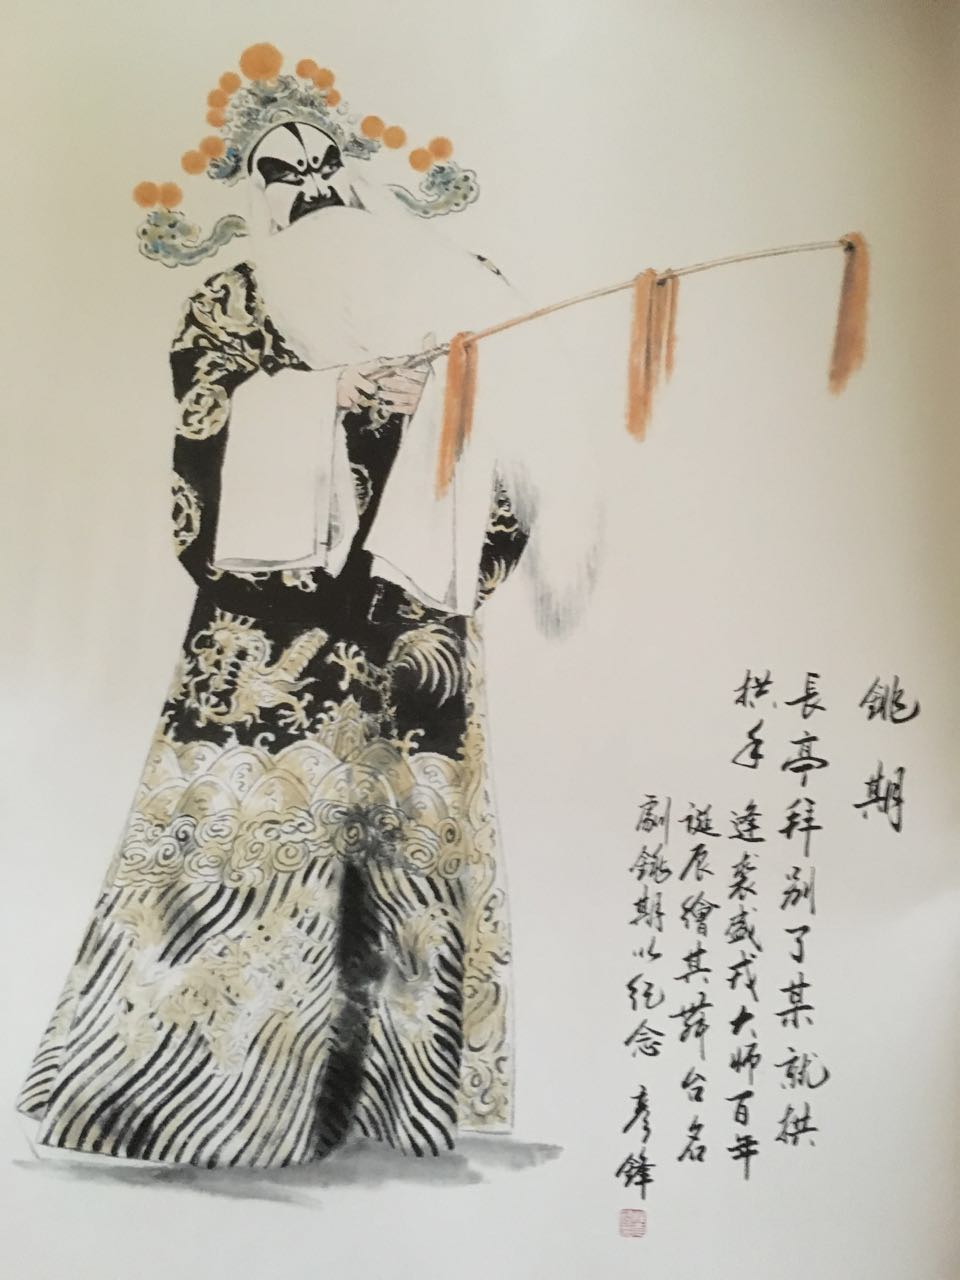 銚期
長亭拜别了某就拱
拱手 逢裘盛戎大师百年
誕辰繪其舞台名
劇銚期以紀念 彦鋒